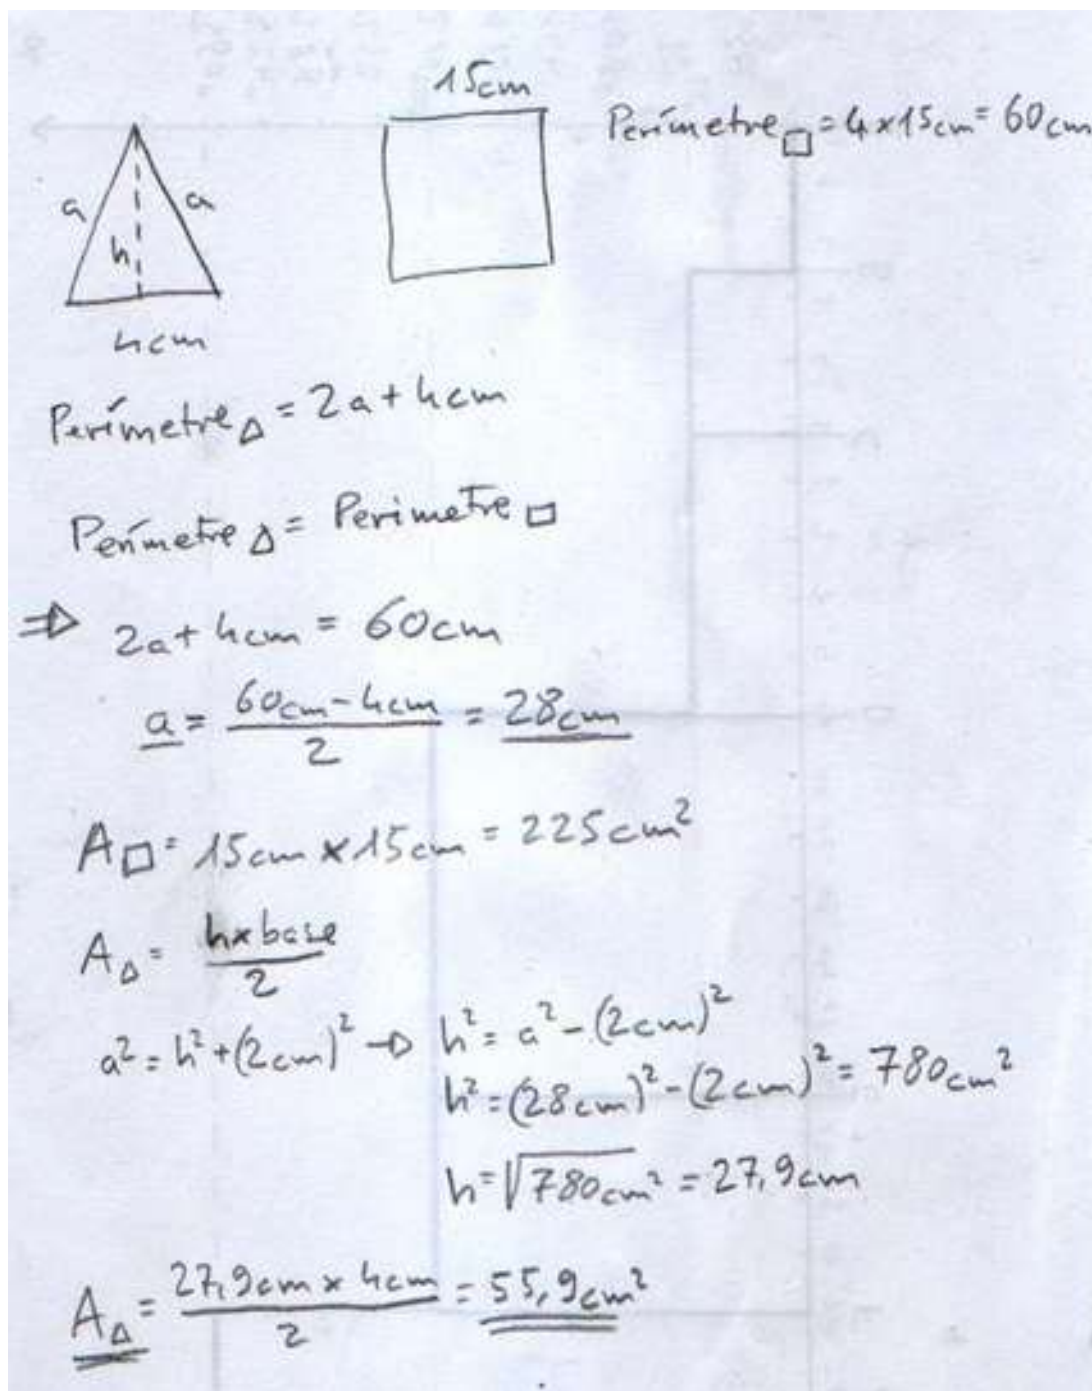 15cm
Perímetre□ = 4 x 15cm = 60cm
a
a
h
4cm
Perímetre△ = 2a + 4cm
Perímetre△ = Perimetre□
⇒ 2a + 4cm = 60cm
a = (60cm - 4cm)/2 = 28cm
A□ = 15cm x 15cm = 225cm²
A△ = (h x base)/2
a² = h² + (2cm)² → h² = a² - (2cm)²
h² = (28cm)² - (2cm)² = 780cm²
h = √780cm² = 27,9cm
A△ = (27,9cm x 4cm)/2 = 55,9cm²